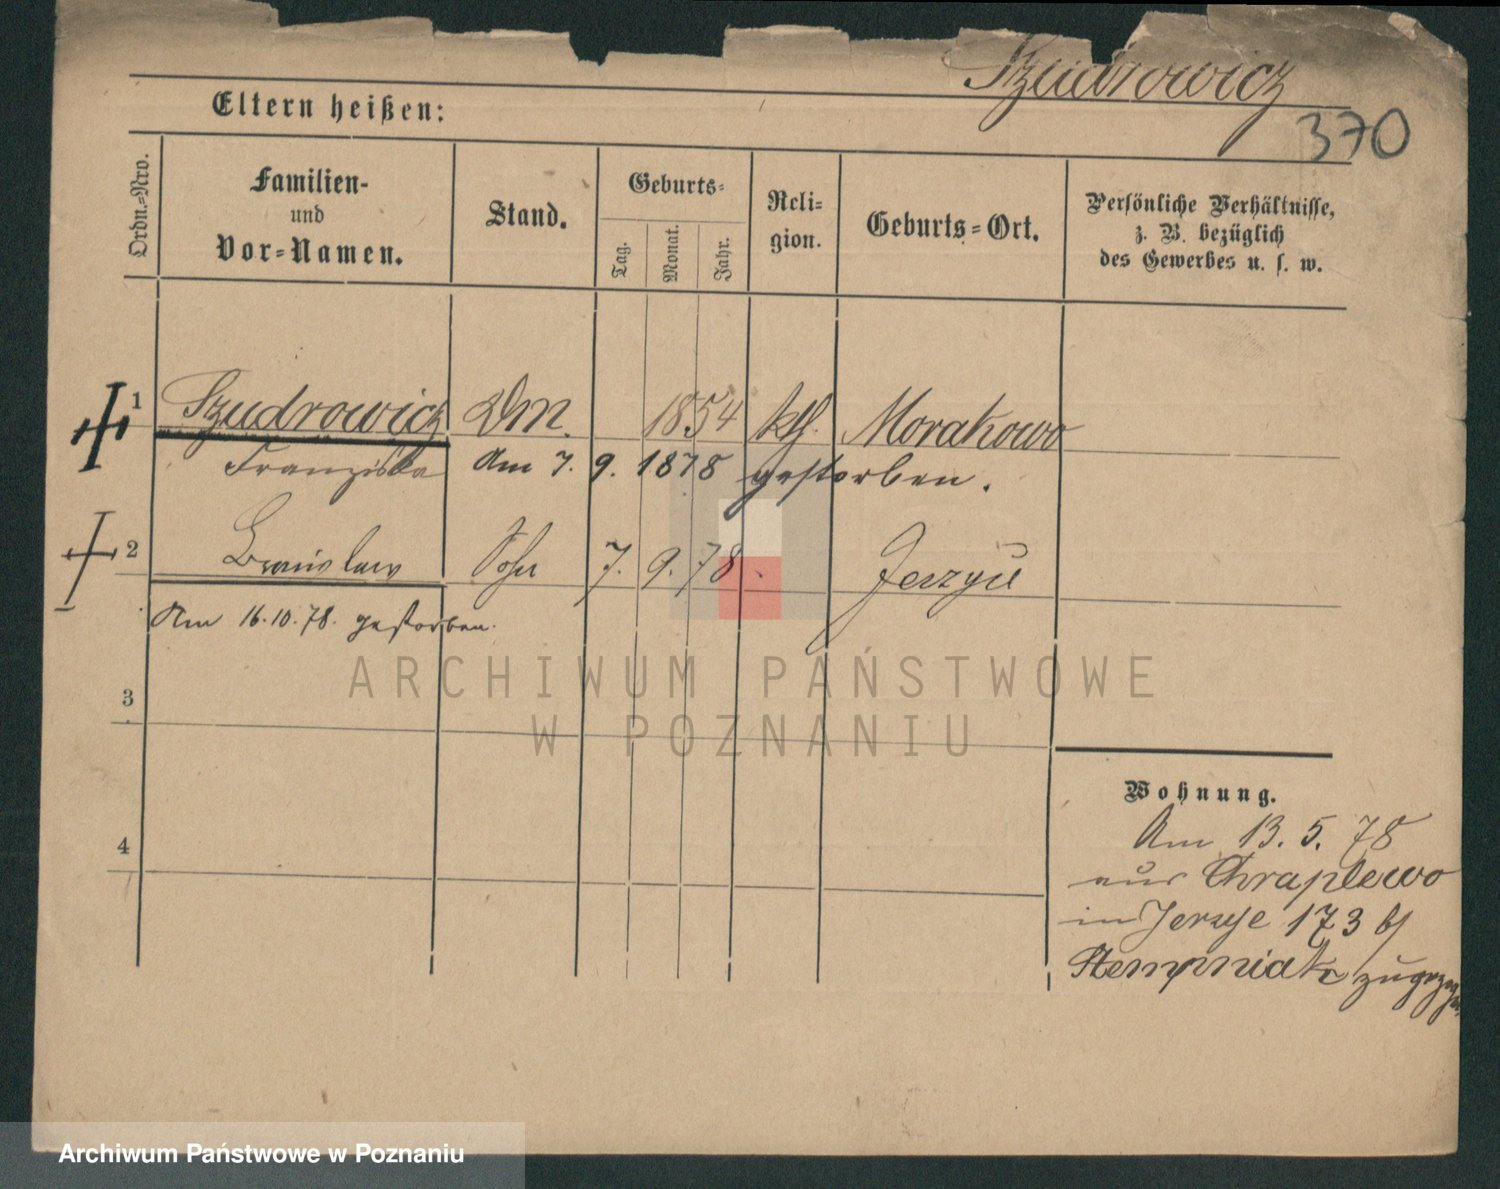 Szudrowicz
370
Eltern heißen:
Ordn.-Nro.
Familien-
und
Vor-Namen.
Stand.
Geburts-
Tag.
Monat.
Jahr.
Reli-
gion.
Geburts-Ort.
Persönliche Verhältnisse,
z. B. bezüglich
des Gewerbes u. s. w.
1 Szudrowicz DM. 1854 kth. Morakowo
Franziska Am 7. 9. 1878 gestorben.
2 Bronislaw Sohn 7. 9. 78. Jerzyce
Am 16.10.78. gestorben.
3
4
Wohnung.
Am 13. 5. 78
aus Chraplewo
in Jerzyce 173 bj
Stempniak zugezogen.
ARCHIWUM PAŃSTWOWE
W POZNANIU
Archiwum Państwowe w Poznaniu